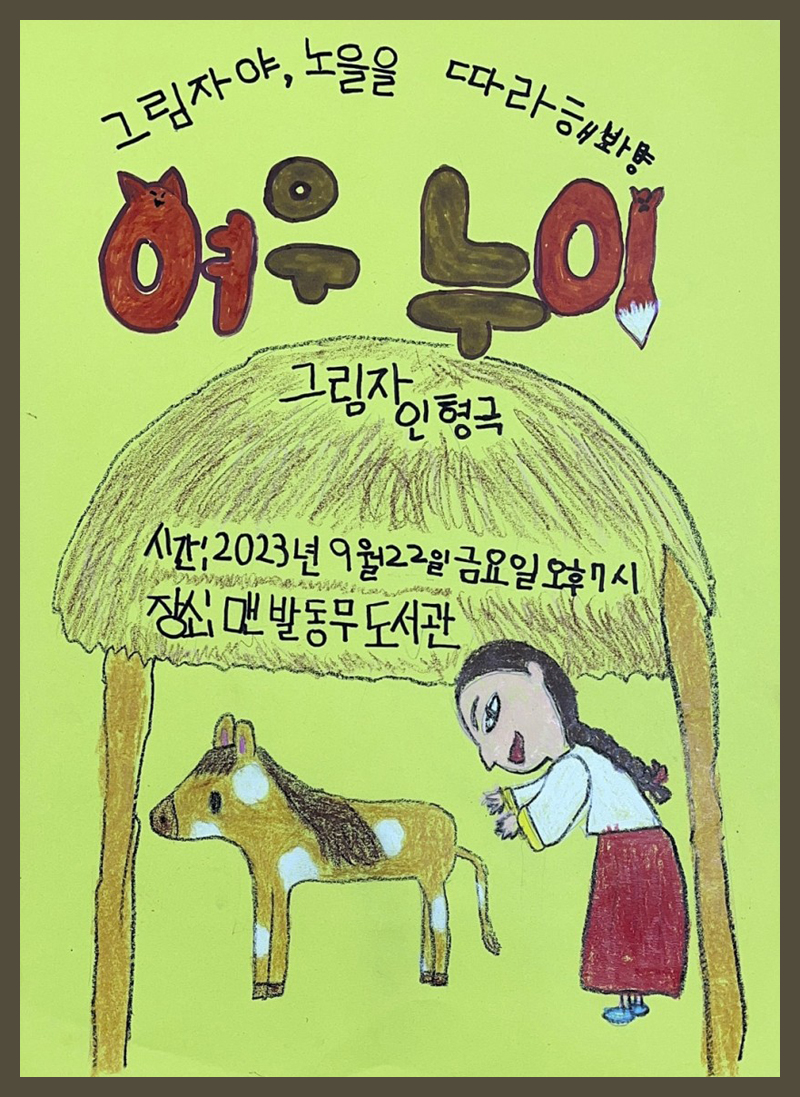 그림자야, 노을을 따라해봐냥
여우 누이
그림자
인형극
시간: 2023년 9월 22일 금요일 오후 7시
장소: 맨발동무 도서관